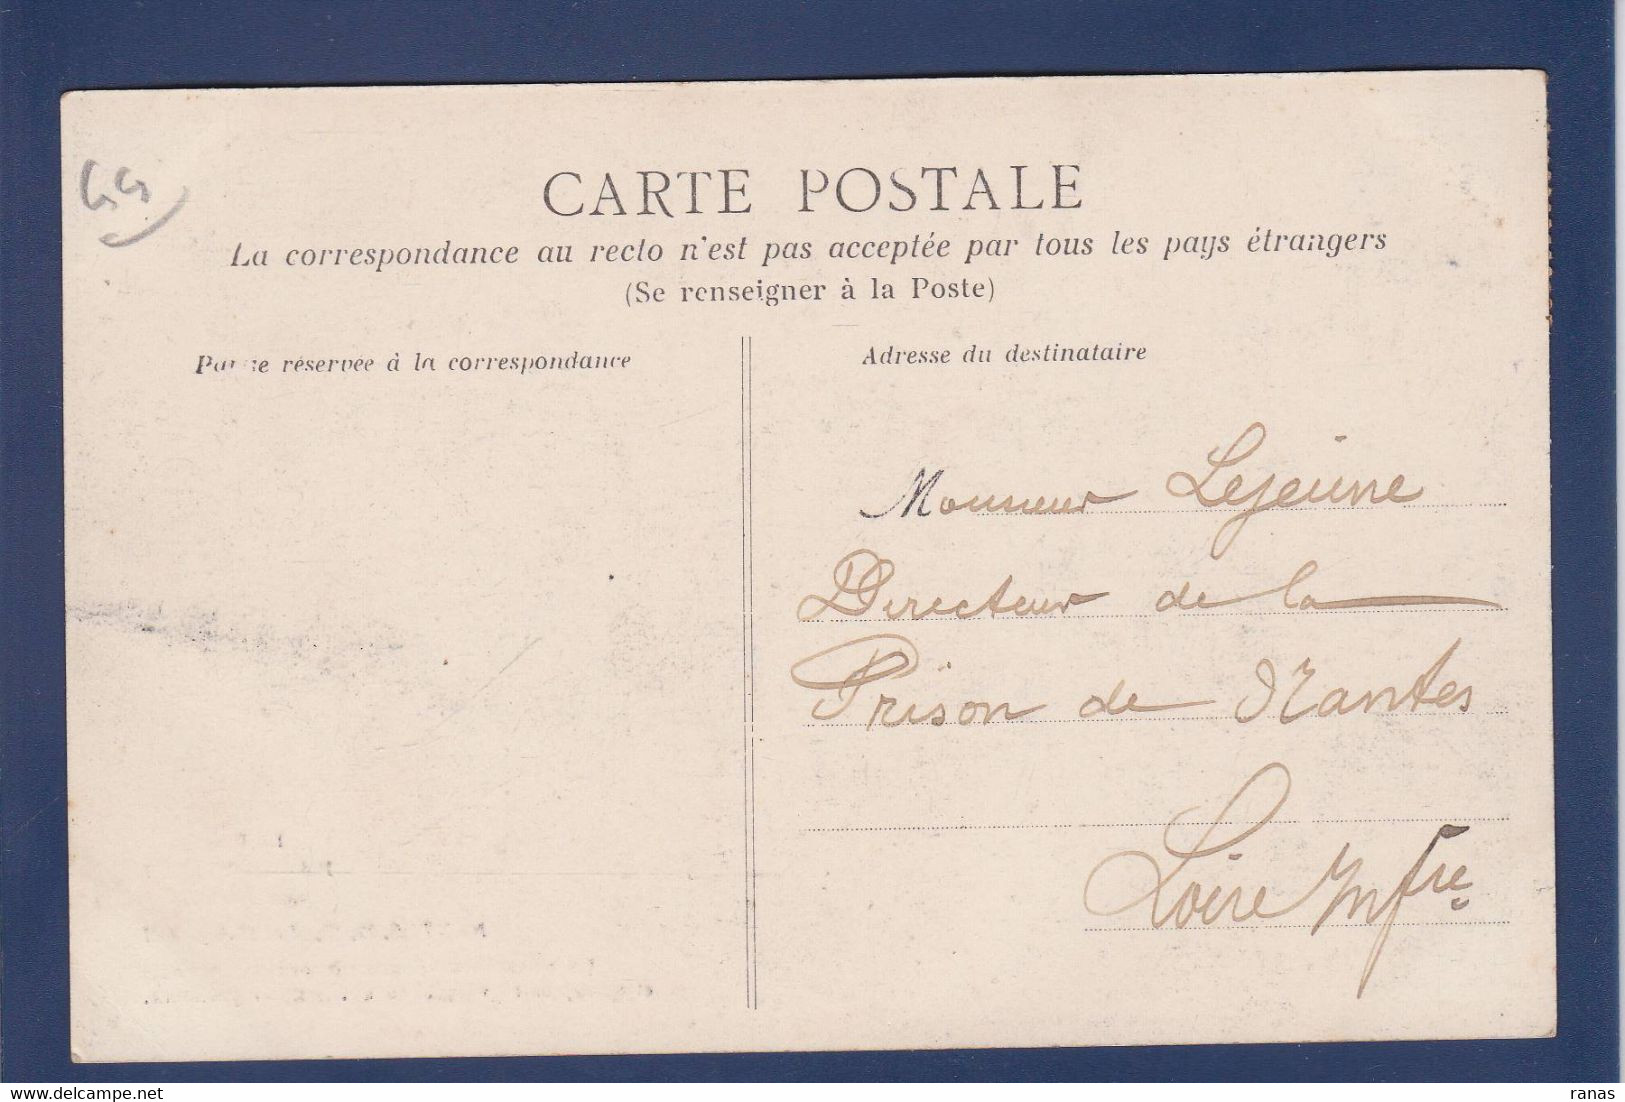 44
CARTE POSTALE
La correspondance au recto n'est pas acceptée par tous les pays étrangers
(Se renseigner à la Poste)
Partie réservée à la correspondance
Adresse du destinataire
Monsieur Lejeune
Directeur de la
Prison de Nantes
Loire Infre
ranas